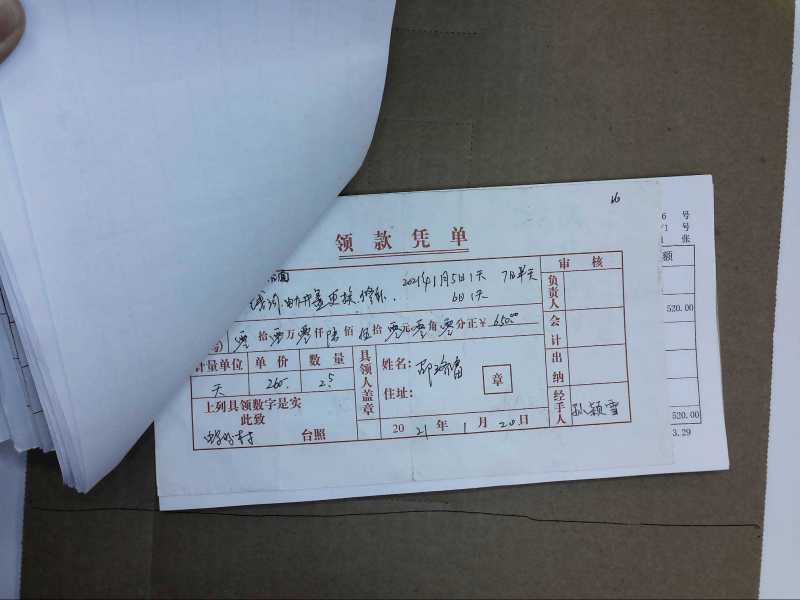 16
领款凭单
6 号
1 号
张
额
审核
2021年1月5日1天 7日半天
更换 6日1天
负责人
520.00
零拾零万零仟陆佰伍拾零元零角零分正¥650.00
会计
计量单位 单价 数量
具领人盖章
姓名:
天 260. 2.5
住址:
章
出纳
上列具领数字是实
此致
台照
2021年1月20日
经手人
孙颖雪
520.00
3.29